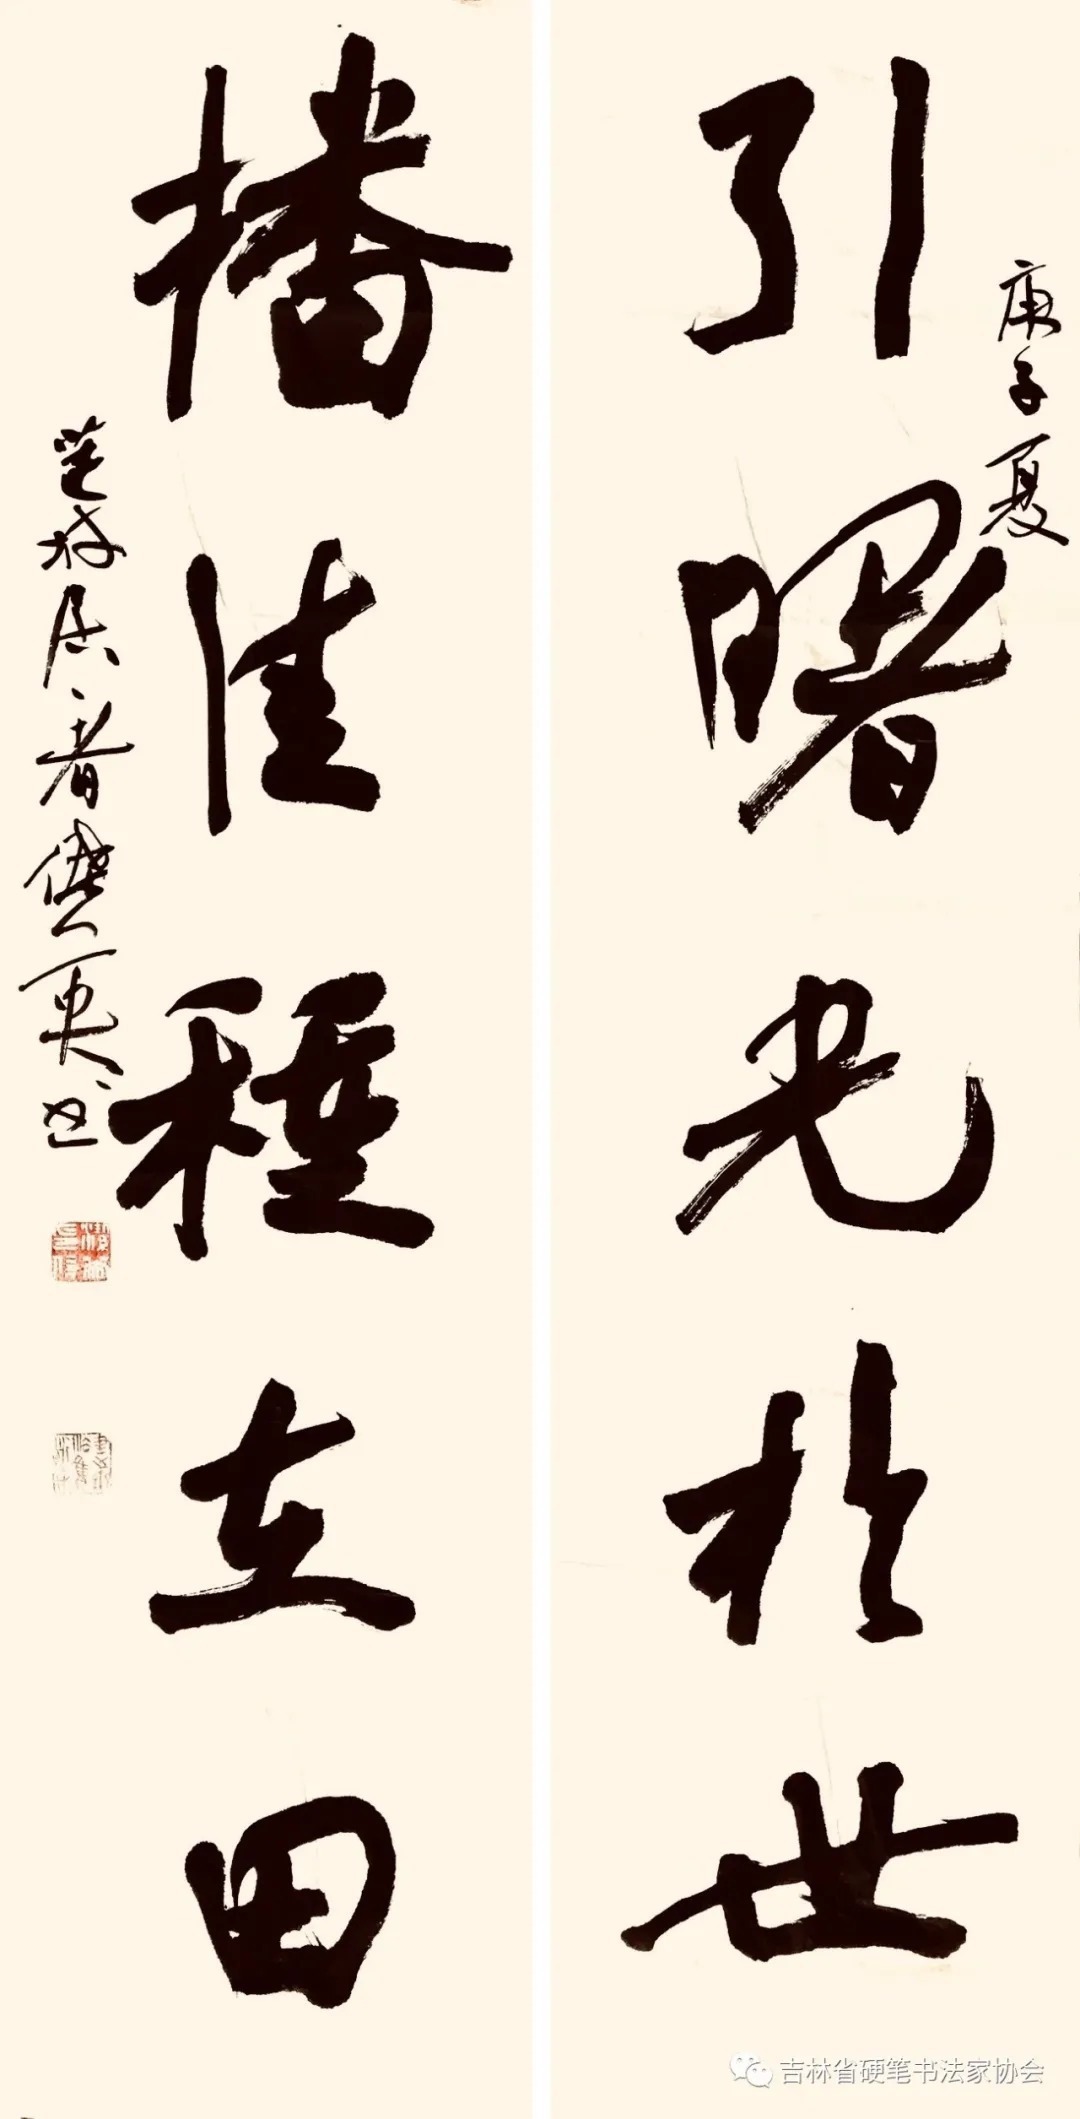 庚子夏
引曙光於世
播佳種在田
居者
书
吉林省硬笔书法家协会